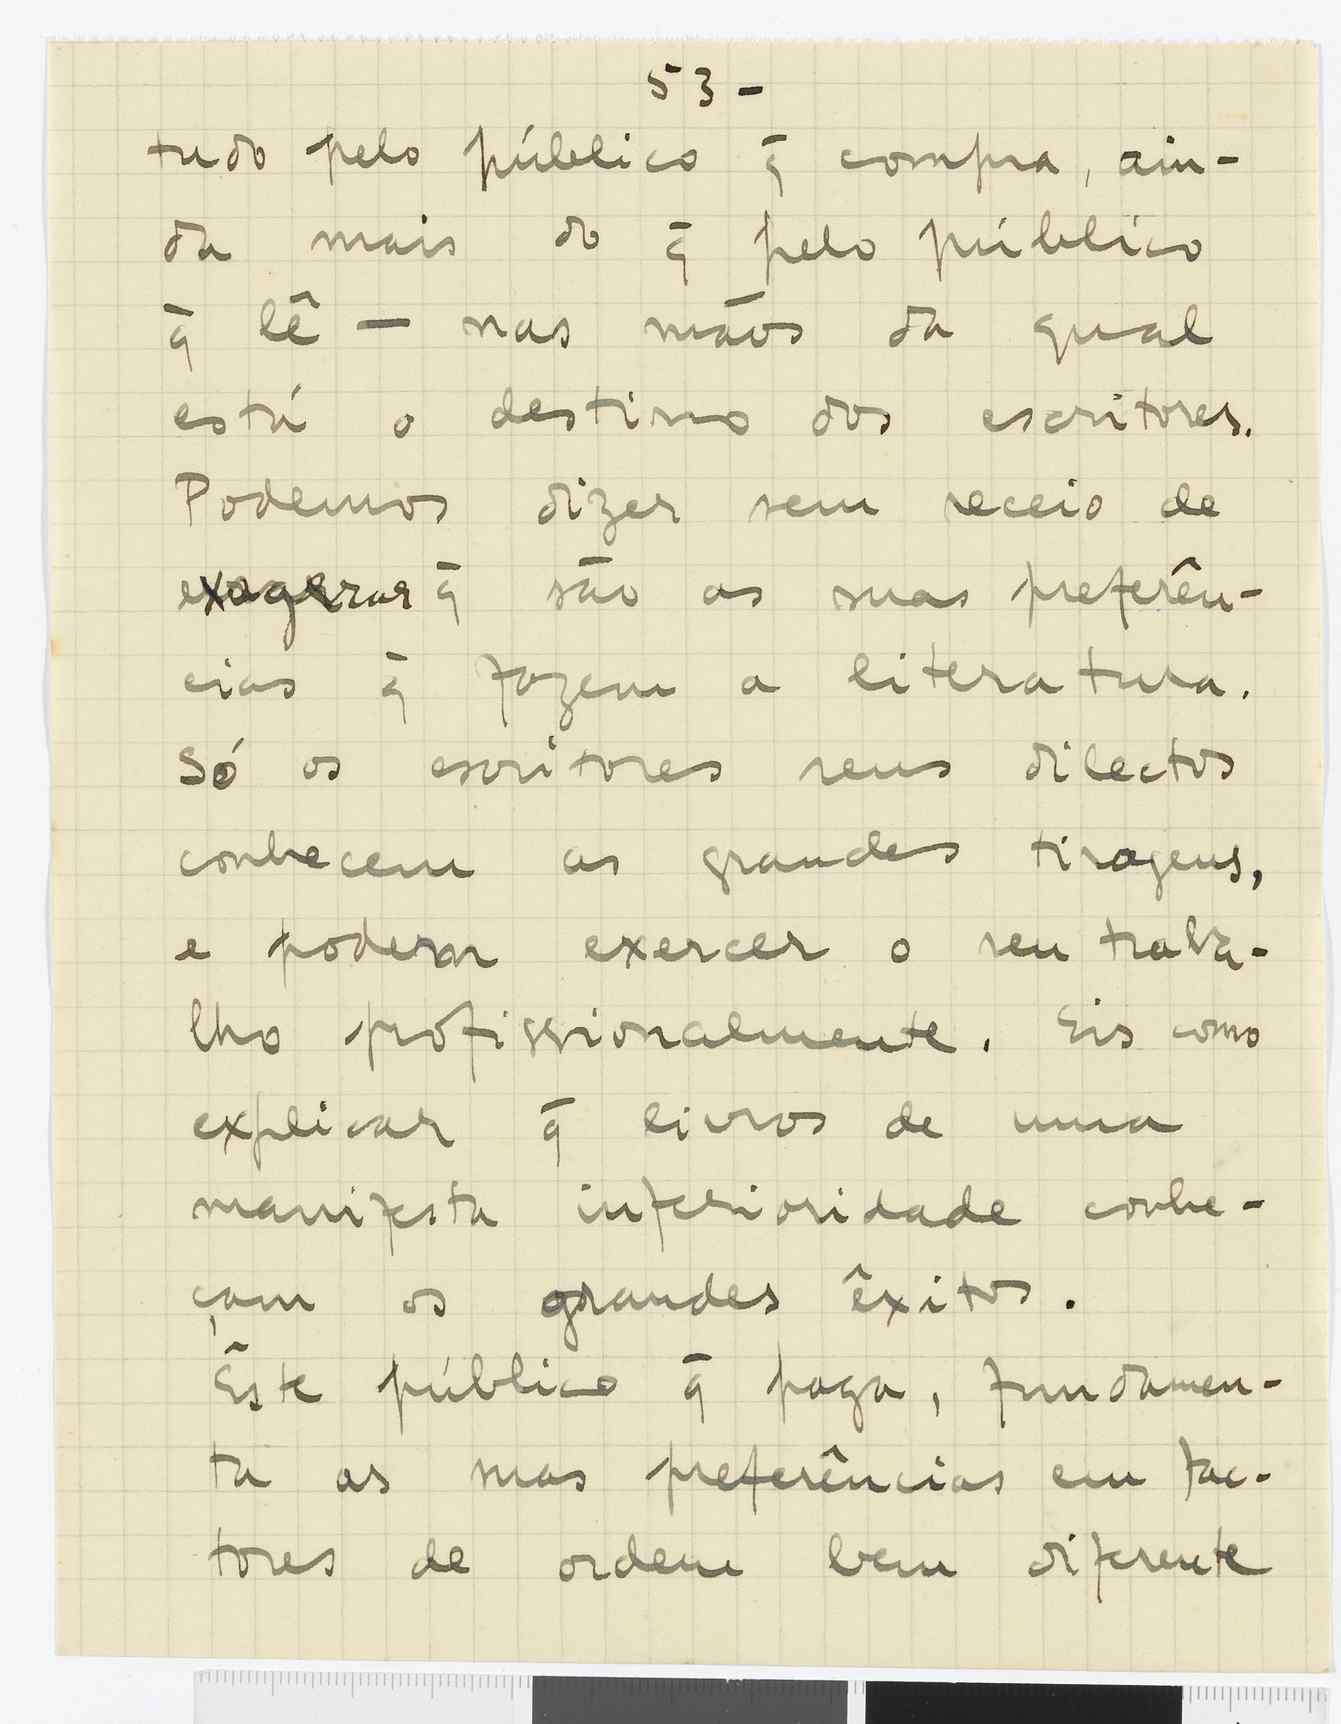 53-
tudo pelo público q̄ compra, ain-
da mais do q̄ pelo público
q̄ lê — nas mãos da qual
está o destino dos escritores.
Podemos dizer sem receio de
exagerar q̄ são as suas preferên-
cias q̄ fazem a literatura.
Só os escritores seus dilectos
conhecem as grandes tiragens,
e podem exercer o seu traba-
lho profissionalmente. Eis como
explicar q̄ livros de uma
manifesta inferioridade conhe-
çam os grandes êxitos.
Êste público q̄ paga, fundamen-
ta as suas preferências em fac-
tores de ordem bem diferente